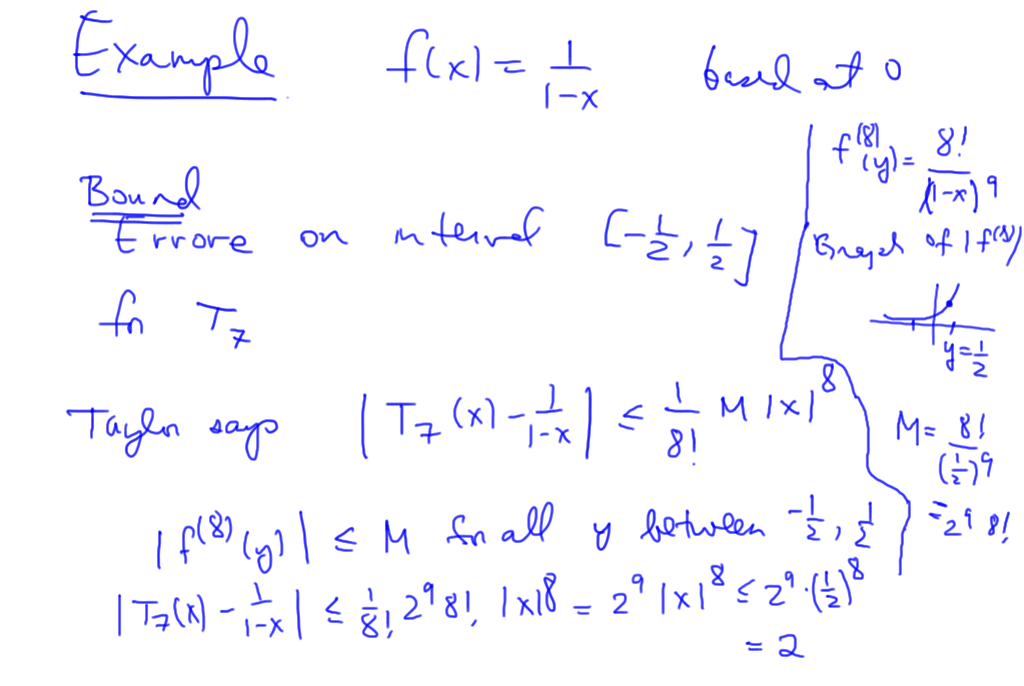 Example f(x) = 1/(1-x) based at 0
Bound
Errore on interval [-1/2, 1/2]
for T_7
Taylor says |T_7(x) - 1/(1-x)| ≤ 1/8! M |x|^8
|f^(8)(y)| ≤ M for all y between -1/2, 1/2
|T_7(x) - 1/(1-x)| ≤ 1/8! 2^9 8! |x|^8 = 2^9 |x|^8 ≤ 2^9 · (1/2)^8
= 2
f^(8)(y) = 8!/(1-x)^9
of |f^(8)|
y = 1/2
M = 8!/(1/2)^9
= 2^9 8!